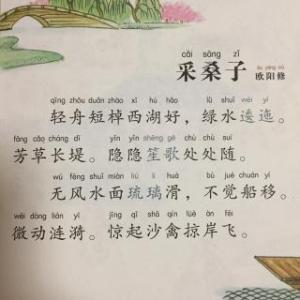 cǎi sāng zǐ
采桑子 欧阳修
qīng zhōu duǎn zhào xī hú hǎo lǜ shuǐ wēi yí
轻舟短棹西湖好，绿水逶迤。
fāng cǎo cháng dī yǐn yǐn shēng gē chù chù suí
芳草长堤。隐隐笙歌处处随。
wú fēng shuǐ miàn liú lí huá bù jué chuán yí
无风水面琉璃滑，不觉船移。
wēi dòng lián yī jīng qǐ shā qín lüè àn fēi
微动涟漪。惊起沙禽掠岸飞。